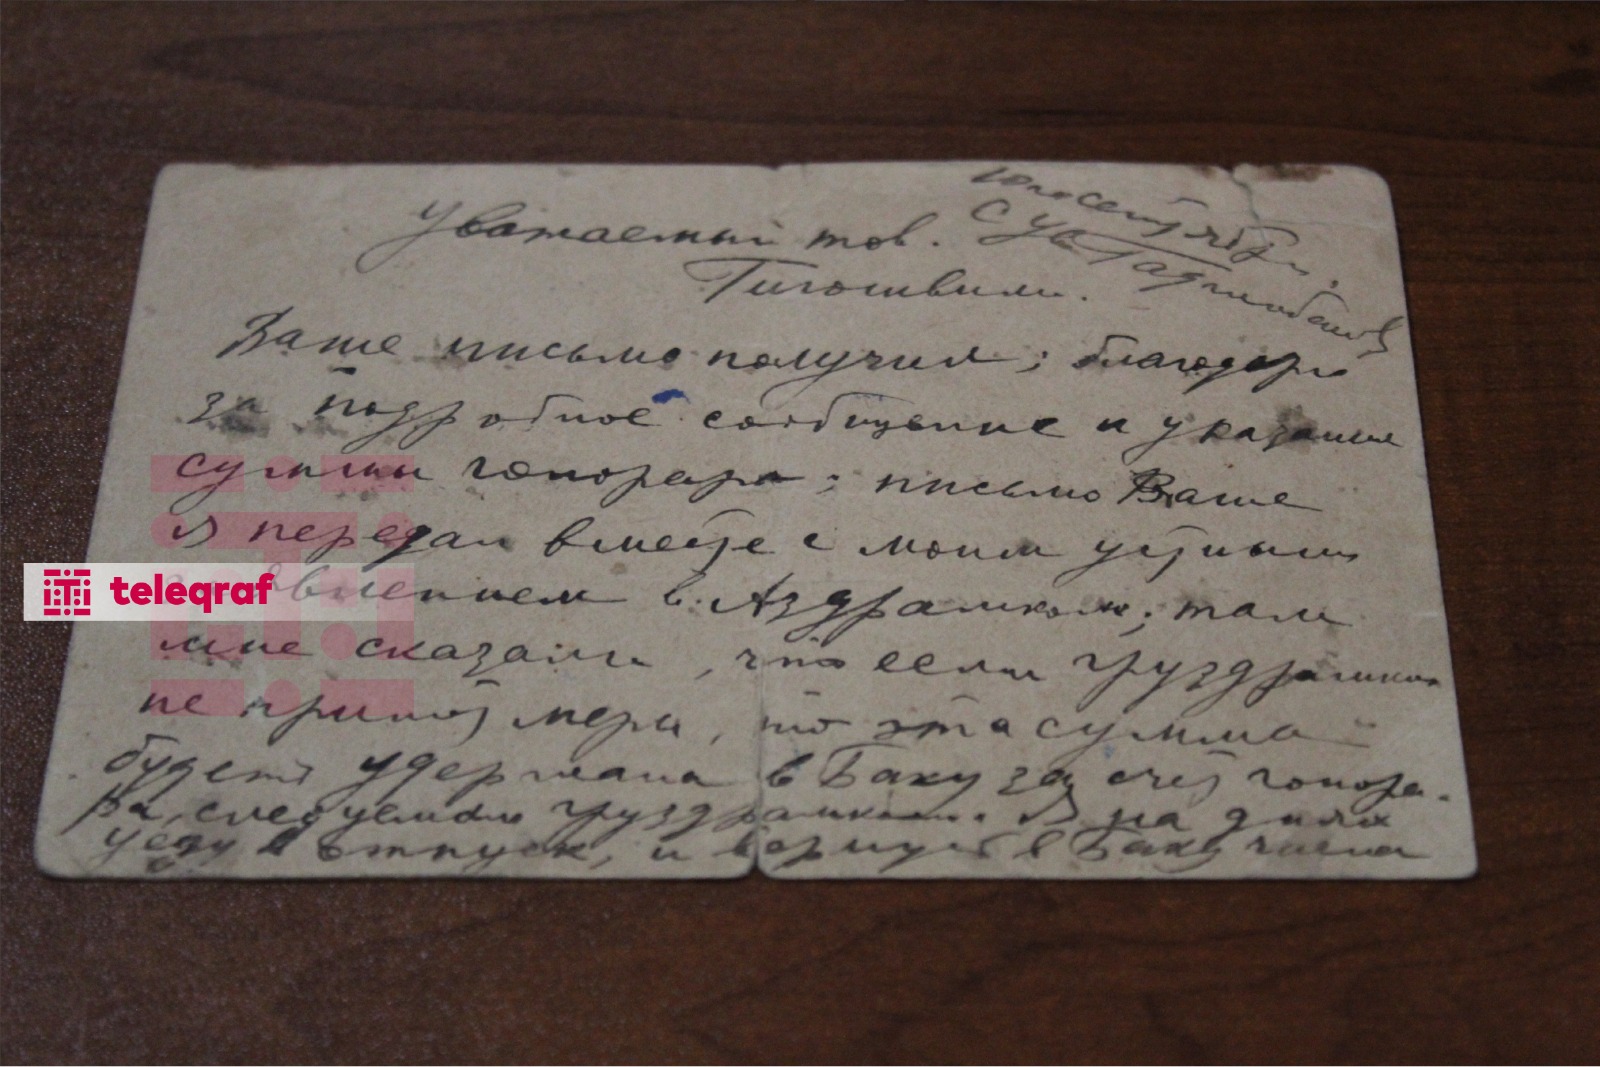 Уважаемый тов.
Гигошвили.
Ваше письмо получил; благодарю
за подробное сообщение и указание
суммы гонорара; письмо Ваше
я передал вместе с моим устным
в Аздрамком; там
мне сказали, что если Груздрамком
не примет меры, то эта сумма
будет удержана в Баку за счет гонора-
ра, следуемого груздрамкому. Я на днях
уеду в отпуск, и вернусь в Баку числа
10 сентября.
С ув Гаджибеков
teleqraf